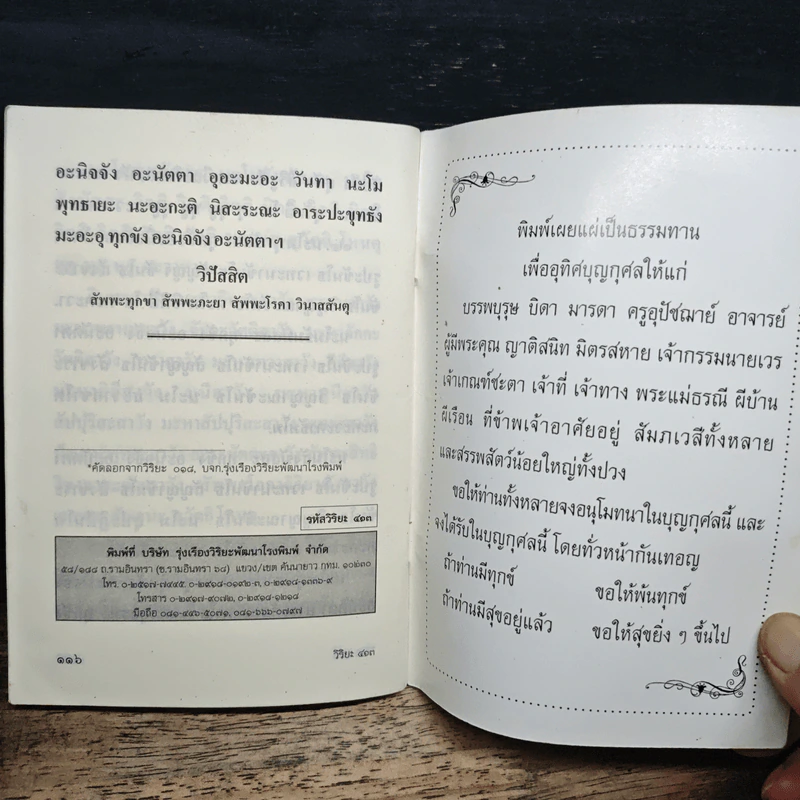 อะนิจจัง อะนัตตา อุอะมะอะ วันทา นะโม
พุทธายะ นะอะกะติ นิสะระณะ อาระปะขุทธัง
มะอะอุ ทุกขัง อะนิจจัง อะนัตตาฯ
วิปัสสิต
สัพพะทุกขา สัพพะภะยา สัพพะโรคา วินาสสันตุ
*คัดลอกจากวิริยะ ๐๑๘, บจก.รุ่งเรืองวิริยะพัฒนาโรงพิมพ์
รหัสวิริยะ ๔๑๓
พิมพ์ที่ บริษัท รุ่งเรืองวิริยะพัฒนาโรงพิมพ์ จำกัด
๕๘/๑๘๘ ถ.รามอินทรา (ซ.รามอินทรา ๖๘) แขวง/เขต คันนายาว กทม. ๑๐๒๓๐
โทร. ๐-๒๕๑๗-๗๔๔๕, ๐-๒๙๑๘-๐๑๙๒-๓, ๐-๒๙๑๘-๑๓๓๖-๙
โทรสาร ๐-๒๙๑๗-๙๐๗๒, ๐-๒๙๑๘-๑๒๑๘
มือถือ ๐๘๑-๔๔๖-๕๐๗๑, ๐๘๑-๖๖๖-๐๗๙๗
๑๑๖
วิริยะ ๔๑๓
พิมพ์เผยแผ่เป็นธรรมทาน
เพื่ออุทิศบุญกุศลให้แก่
บรรพบุรุษ บิดา มารดา ครูอุปัชฌาย์ อาจารย์
ผู้มีพระคุณ ญาติสนิท มิตรสหาย เจ้ากรรมนายเวร
เจ้าเกณฑ์ชะตา เจ้าที่ เจ้าทาง พระแม่ธรณี ผีบ้าน
ผีเรือน ที่ข้าพเจ้าอาศัยอยู่ สัมภเวสีทั้งหลาย
และสรรพสัตว์น้อยใหญ่ทั้งปวง
ขอให้ท่านทั้งหลายจงอนุโมทนาในบุญกุศลนี้ และ
จงได้รับในบุญกุศลนี้ โดยทั่วหน้ากันเทอญ
ถ้าท่านมีทุกข์ ขอให้พ้นทุกข์
ถ้าท่านมีสุขอยู่แล้ว ขอให้สุขยิ่ง ๆ ขึ้นไป